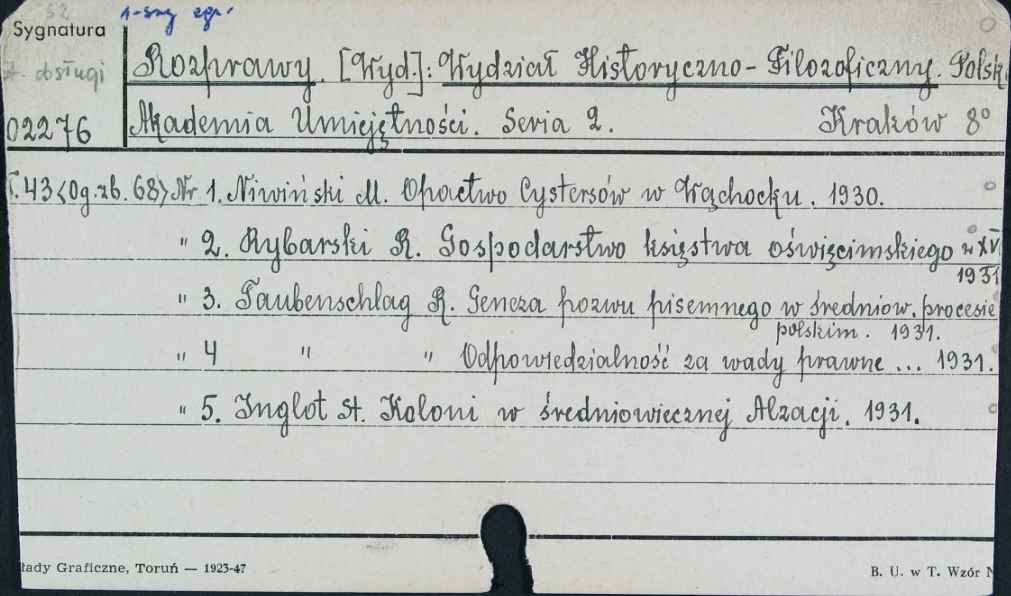 52 1-szy egz.
Sygnatura
Rozprawy. [Wyd.]: Wydział Historyczno-Filozoficzny. Polsk
st. obsługi
02276 Akademia Umiejętności. Seria 2. Kraków 8°
T. 43<Og. zb. 68> Nr 1. Niwiński M. Opactwo Cystersów w Wąchocku. 1930.
" 2. Rybarski R. Gospodarstwo księstwa oświęcimskiego w XVI
1931
" 3. Taubenschlag R. Geneza pozwu pisemnego w średniow. procesie
polskim. 1931.
" 4 " " Odpowiedzialność za wady prawne ... 1931.
" 5. Inglot St. Koloni w średniowiecznej Alzacji. 1931.
łady Graficzne, Toruń — 1923-47
B. U. w T. Wzór N